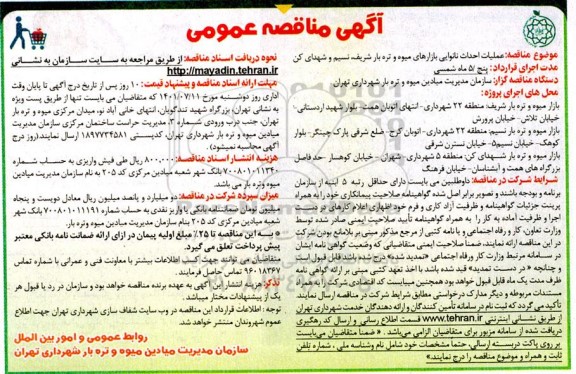 آگهی مناقصه عمومی
موضوع مناقصه: عملیات احداث نانوایی بازارهای میوه و تره بار شریف، نسیم و شهدای کن
مدت اجرای قرارداد: پنج /۵ ماه شمسی
دستگاه مناقصه گزار: سازمان مدیریت میادین میوه و تره بار شهرداری تهران
محل های اجرای پروژه:
بازار میوه و تره بار شریف: منطقه ۲۲ شهرداری- انتهای اتوبان همت- بلوار شهید اردستانی-
خیابان تلاش- خیابان پرورش
بازار میوه و تره بار نسیم: منطقه ۲۲ شهرداری- اتوبان کرج- ضلع شرقی پارک چیتگر- بلوار
کوهک- خیابان نسیم۵- خیابان نسترن شرقی
بازار میوه و تره بار شهدای کن: منطقه ۵ شهرداری- شهران- خیابان کوهسار- حد فاصل
بزرگراه های همت و آبشناسان- خیابان فرهنگ
شرایط شرکت در مناقصه: داوطلبین می بایست دارای حداقل رتبه ۵ ابنیه از سازمان
برنامه و بودجه باشند و تصویر برابر اصل شده گواهینامه صلاحیت پیمانکاری خود را به همراه
پرینت جزئیات گواهینامه و ظرفیت آزاد کاری و فرم خود اظهاری اعلام کارهای در دست
اجرا و ظرفیت آماده به کار را به همراه گواهینامه تأیید صلاحیت ایمنی صادر شده توسط
وزارت تعاون، کار و رفاه اجتماعی و یا نامه کتبی از مرجع مذکور مبنی بر بلامانع بودن شرکت
در این مناقصه ارائه نمایند، ضمناً صلاحیت ایمنی متقاضیانی که وضعیت گواهی نامه ایشان
در سامانه مرتبط وزارت کار و رفاه اجتماعی «تمدید شده» درج شده باشد قابل قبول است
و چنانچه « در دست تمدید» قید شده باشد با اخذ تعهد کتبی مبنی بر ارائه گواهی نامه
ظرف مدت یک ماه قابل قبول خواهد بود همچنین میبایست کد اقتصادی شرکت به همراه
مستندات مربوطه و دیگر مدارک درخواستی مطابق شرایط شرکت در مناقصه ارسال نمایند.
تأکید می گردد که ثبت نام در سامانه تأمین کنندگان و ارائه دهندگان خدمت شهرداری تهران
از طریق نشانی اینترنتی www.tehran.ir قسمت اطلاع رسانی و ارسال کد رهگیری
دریافت شده از سامانه مزبور برای متقاضیان الزامی می‌باشد . « ضمناً متقاضیان می‌بایست
بر روی پاکت دربسته ارسالی، حتماً مشخصات خود شامل نام وشناسه ملی ، شماره تلفن
ثابت و همراه و موضوع مناقصه را درج نمایند.»
نحوه دریافت اسناد مناقصه: از طریق مراجعه به سایت سازمان به نشانی
http://mayadin.tehran.ir
مهلت ارائه اسناد مناقصه و پیشنهاد قیمت: ۱۰ روز پس از تاریخ درج آگهی تا پایان وقت
اداری روز دوشنبه مورخ ۱۴۰۱/۰۷/۱۱ که متقاضیان می بایست تنها از طریق پست ویژه
به نشانی تهران، بزرگراه شهید تندگویان، انتهای خانی آباد نو، میدان مرکزی میوه و تره بار
تهران، جنب درب ورودی شماره ۳، مدیریت حراست ساختمان مرکزی سازمان مدیریت
میادین میوه و تره بار شهرداری تهران، کدپستی ۱۸۹۷۷۳۴۵۸۱ ارسال نمایند.(روز درج
آگهی محاسبه نمیشود).
هزینه انتشار اسناد مناقصه: ۸۰۰.۰۰۰ ریال طی فیش واریزی به حساب شماره
۷۰۰۸۰۱۰۱۱۳۴۰ بانک شهر شعبه میادین مرکزی کد ۲۰۵ به نام سازمان مدیریت میادین
میوه وتره بار می باشد.
میزان سپرده شرکت در مناقصه: دو میلیارد و پانصد میلیون ریال معادل دویست و پنجاه
میلیون تومان ضمانتنامه بانکی یا واریز نقدی به حساب شماره ۷۰۰۸۰۱۰۱۱۱۹۱ بانک شهر
شعبه میادین مرکزی کد ۲۰۵ بنام سازمان مدیریت میادین میوه وتره بار
« به این مناقصه تا ۲۵٪ مبلغ اولیه پیمان در ازای ارائه ضمانت نامه بانکی معتبر
پیش پرداخت تعلق می گیرد.
متقاضیان می توانند جهت کسب اطلاعات بیشتر با معاونت فنی و عمرانی با شماره تماس
۹۶۰۱۸۳۶۷ تماس حاصل فرمایند.
تذکر: هزینه انتشار این آگهی به عهده برنده مناقصه خواهد بود و سازمان در رد یا قبول هر
یک از پیشنهادات مختار میباشد.
توجه : اطلاعات قرارداد این مناقصه در وب سایت شفاف سازی شهرداری تهران جهت اطلاع
عموم شهروندان منتشر خواهد شد.
روابط عمومی و امور بین الملل
سازمان مدیریت میادین میوه و تره بار شهرداری تهران